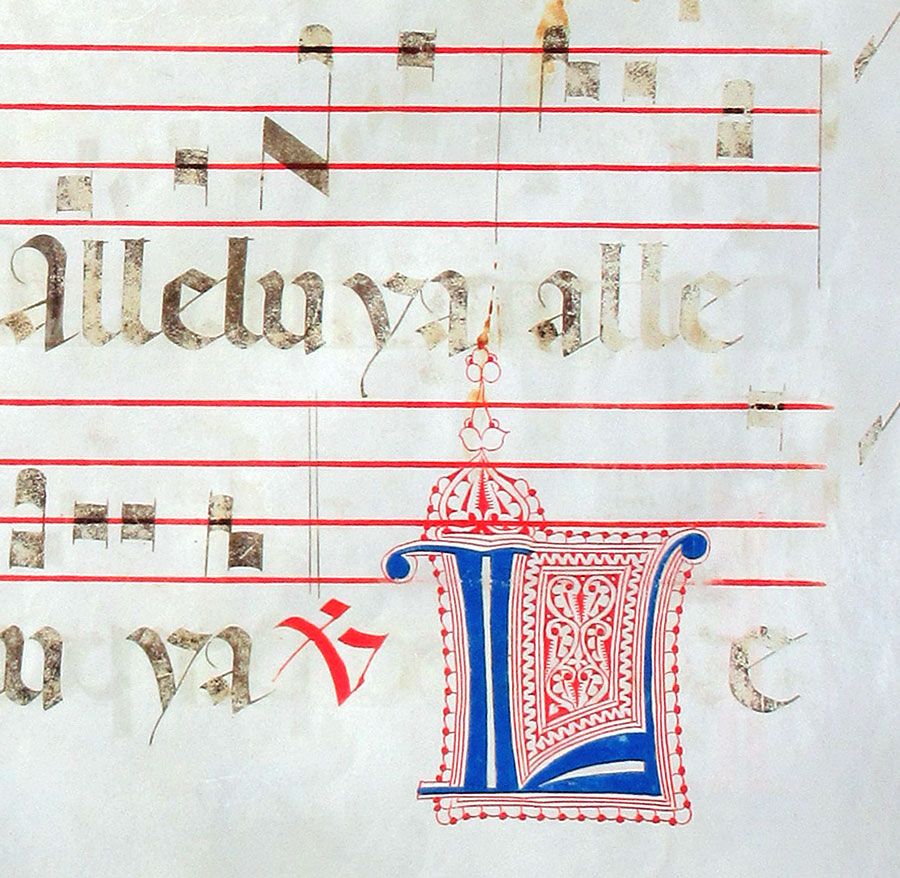 Alleluya alle
u ya ℣ L e